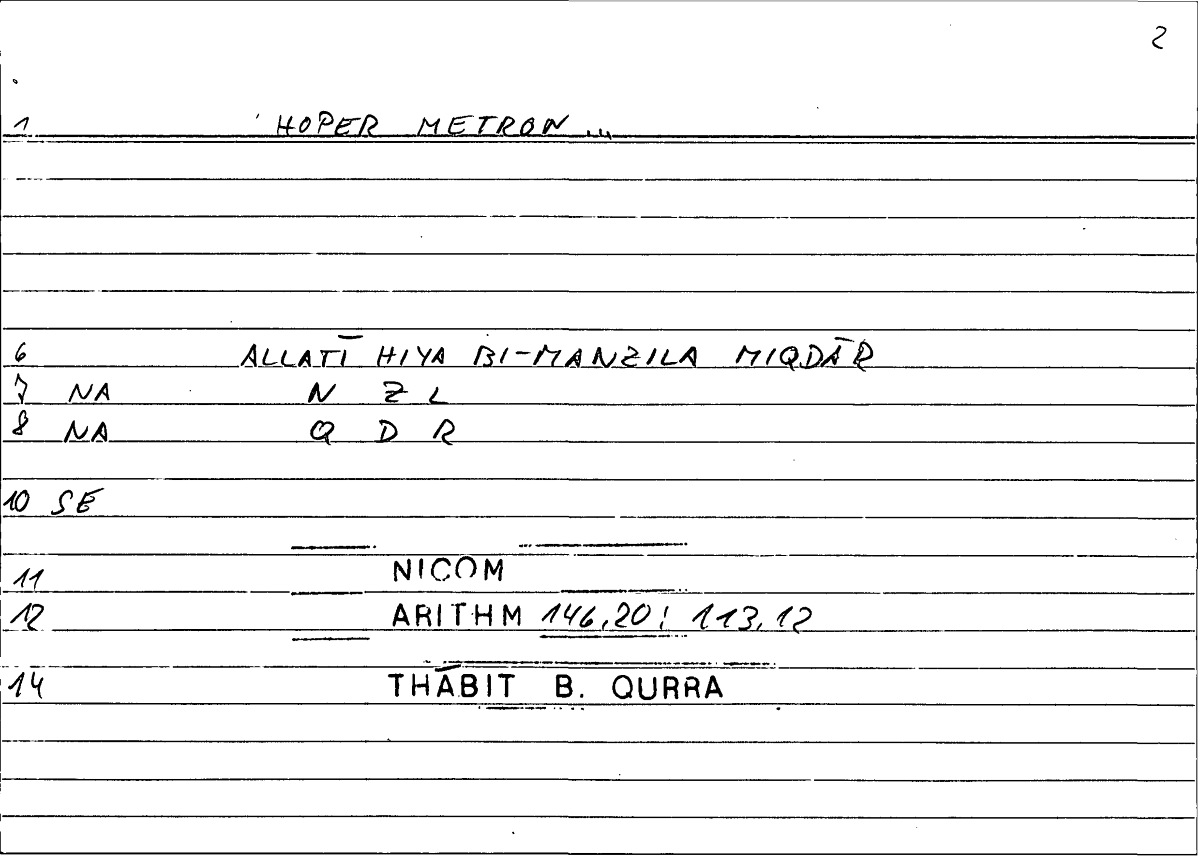 2
1 'HOPER METRON ...
6 ALLATĪ HIYA BI-MANZILA MIQDĀR
7 NA N Z L
8 NA Q D R
10 SE
11 NICOM
12 ARITHM 146,20; 113,12
14 THĀBIT B. QURRA